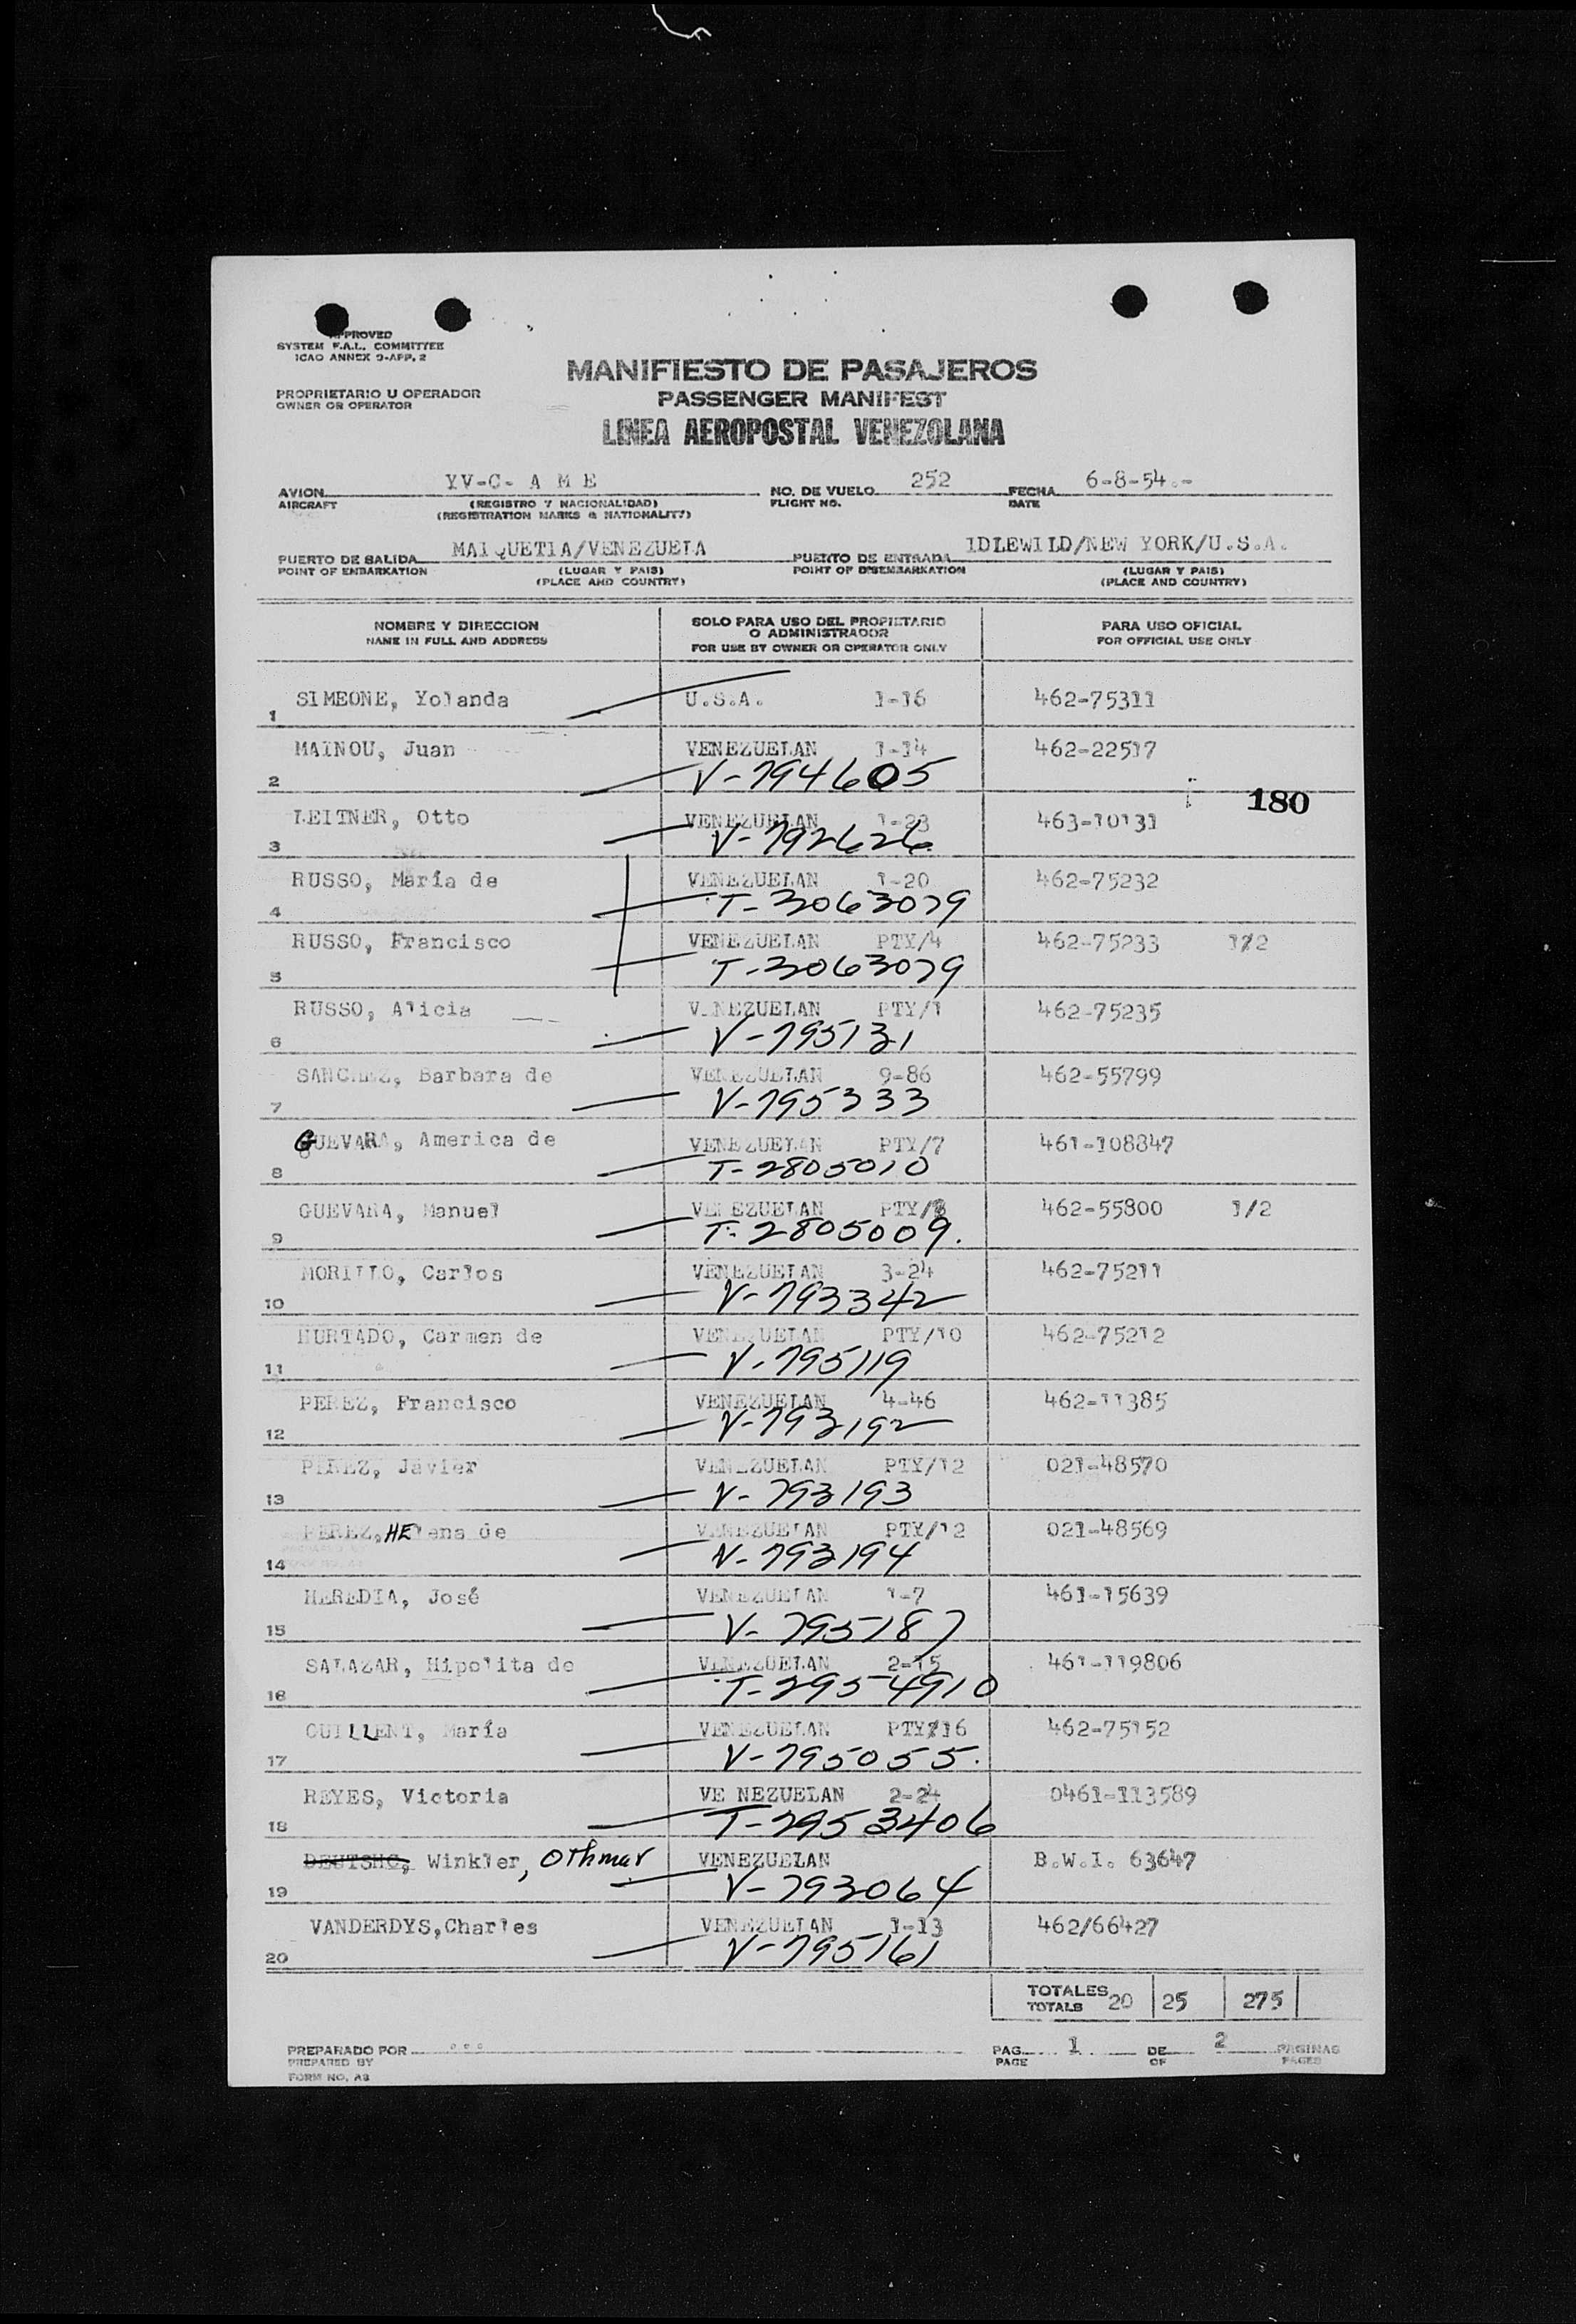 APPROVED
SYSTEM F.A.L. COMMITTEE
ICAO ANNEX 9-APP. 2
PROPRIETARIO U OPERADOR
OWNER OR OPERATOR
MANIFIESTO DE PASAJEROS
PASSENGER MANIFEST
LINEA AEROPOSTAL VENEZOLANA
AVION YV-C- A M E NO. DE VUELO 252 FECHA 6-8-54.-
AIRCRAFT (REGISTRO Y NACIONALIDAD) FLIGHT NO. DATE
(REGISTRATION MARKS & NATIONALITY)
PUERTO DE SALIDA MAIQUETIA/VENEZUELA PUERTO DE ENTRADA IDLEWILD/NEW YORK/U.S.A.
POINT OF EMBARKATION (LUGAR Y PAIS) POINT OF DISEMBARKATION (LUGAR Y PAIS)
(PLACE AND COUNTRY) (PLACE AND COUNTRY)
NOMBRE Y DIRECCION SOLO PARA USO DEL PROPIETARIO PARA USO OFICIAL
NAME IN FULL AND ADDRESS O ADMINISTRADOR FOR OFFICIAL USE ONLY
FOR USE BY OWNER OR OPERATOR ONLY
SIMEONE, Yolanda U.S.A. 1-16 462-75311
1
MAINOU, Juan VENEZUELAN 1-14 462-22517
2 V-794605
180
LEITNER, Otto VENEZUELAN 1-23 463-10131
3 V-792626
RUSSO, María de VENEZUELAN 1-20 462-75232
4 T-3063079
RUSSO, Francisco VENEZUELAN PTY/4 462-75233 1/2
5 T-3063079
RUSSO, Alicia VENEZUELAN PTY/1 462-75235
6 V-795131
SANCHEZ, Barbara de VENEZUELAN 9-86 462-55799
7 V-795333
GUEVARA, America de VENEZUELAN PTY/7 461-108847
8 T-2805010
GUEVARA, Manuel VENEZUELAN PTY/8 462-55800 1/2
9 T-2805009.
MORILLO, Carlos VENEZUELAN 3-24 462-75211
10 V-793342
HURTADO, Carmen de VENEZUELAN PTY/10 462-75212
11 V-795119
PEREZ, Francisco VENEZUELAN 4-46 462-11385
12 V-793192
PEREZ, Javier VENEZUELAN PTY/12 021-48570
13 V-793193
PEREZ, HElena de VENEZUELAN PTY/12 021-48569
14 V-793194
HEREDIA, José VENEZUELAN 1-7 461-15639
15 V-795187
SALAZAR, Hipolita de VENEZUELAN 2-15 461-119806
16 T-2954910
GUILLENT, María VENEZUELAN PTY/16 462-75152
17 V-795055.
REYES, Victoria VE NEZUELAN 2-24 0461-113589
18 T-2953406
DEUTSHC, Winkler, Othmar VENEZUELAN B.W.I. 63647
19 V-793064
VANDERDYS,Charles VENEZUELAN 1-13 462/66427
20 V-795161
TOTALES 20 25 275
TOTALS
PREPARADO POR PAG. 1 DE 2 PAGINAS
PREPARED BY PAGE OF PAGES
FORM NO. A3